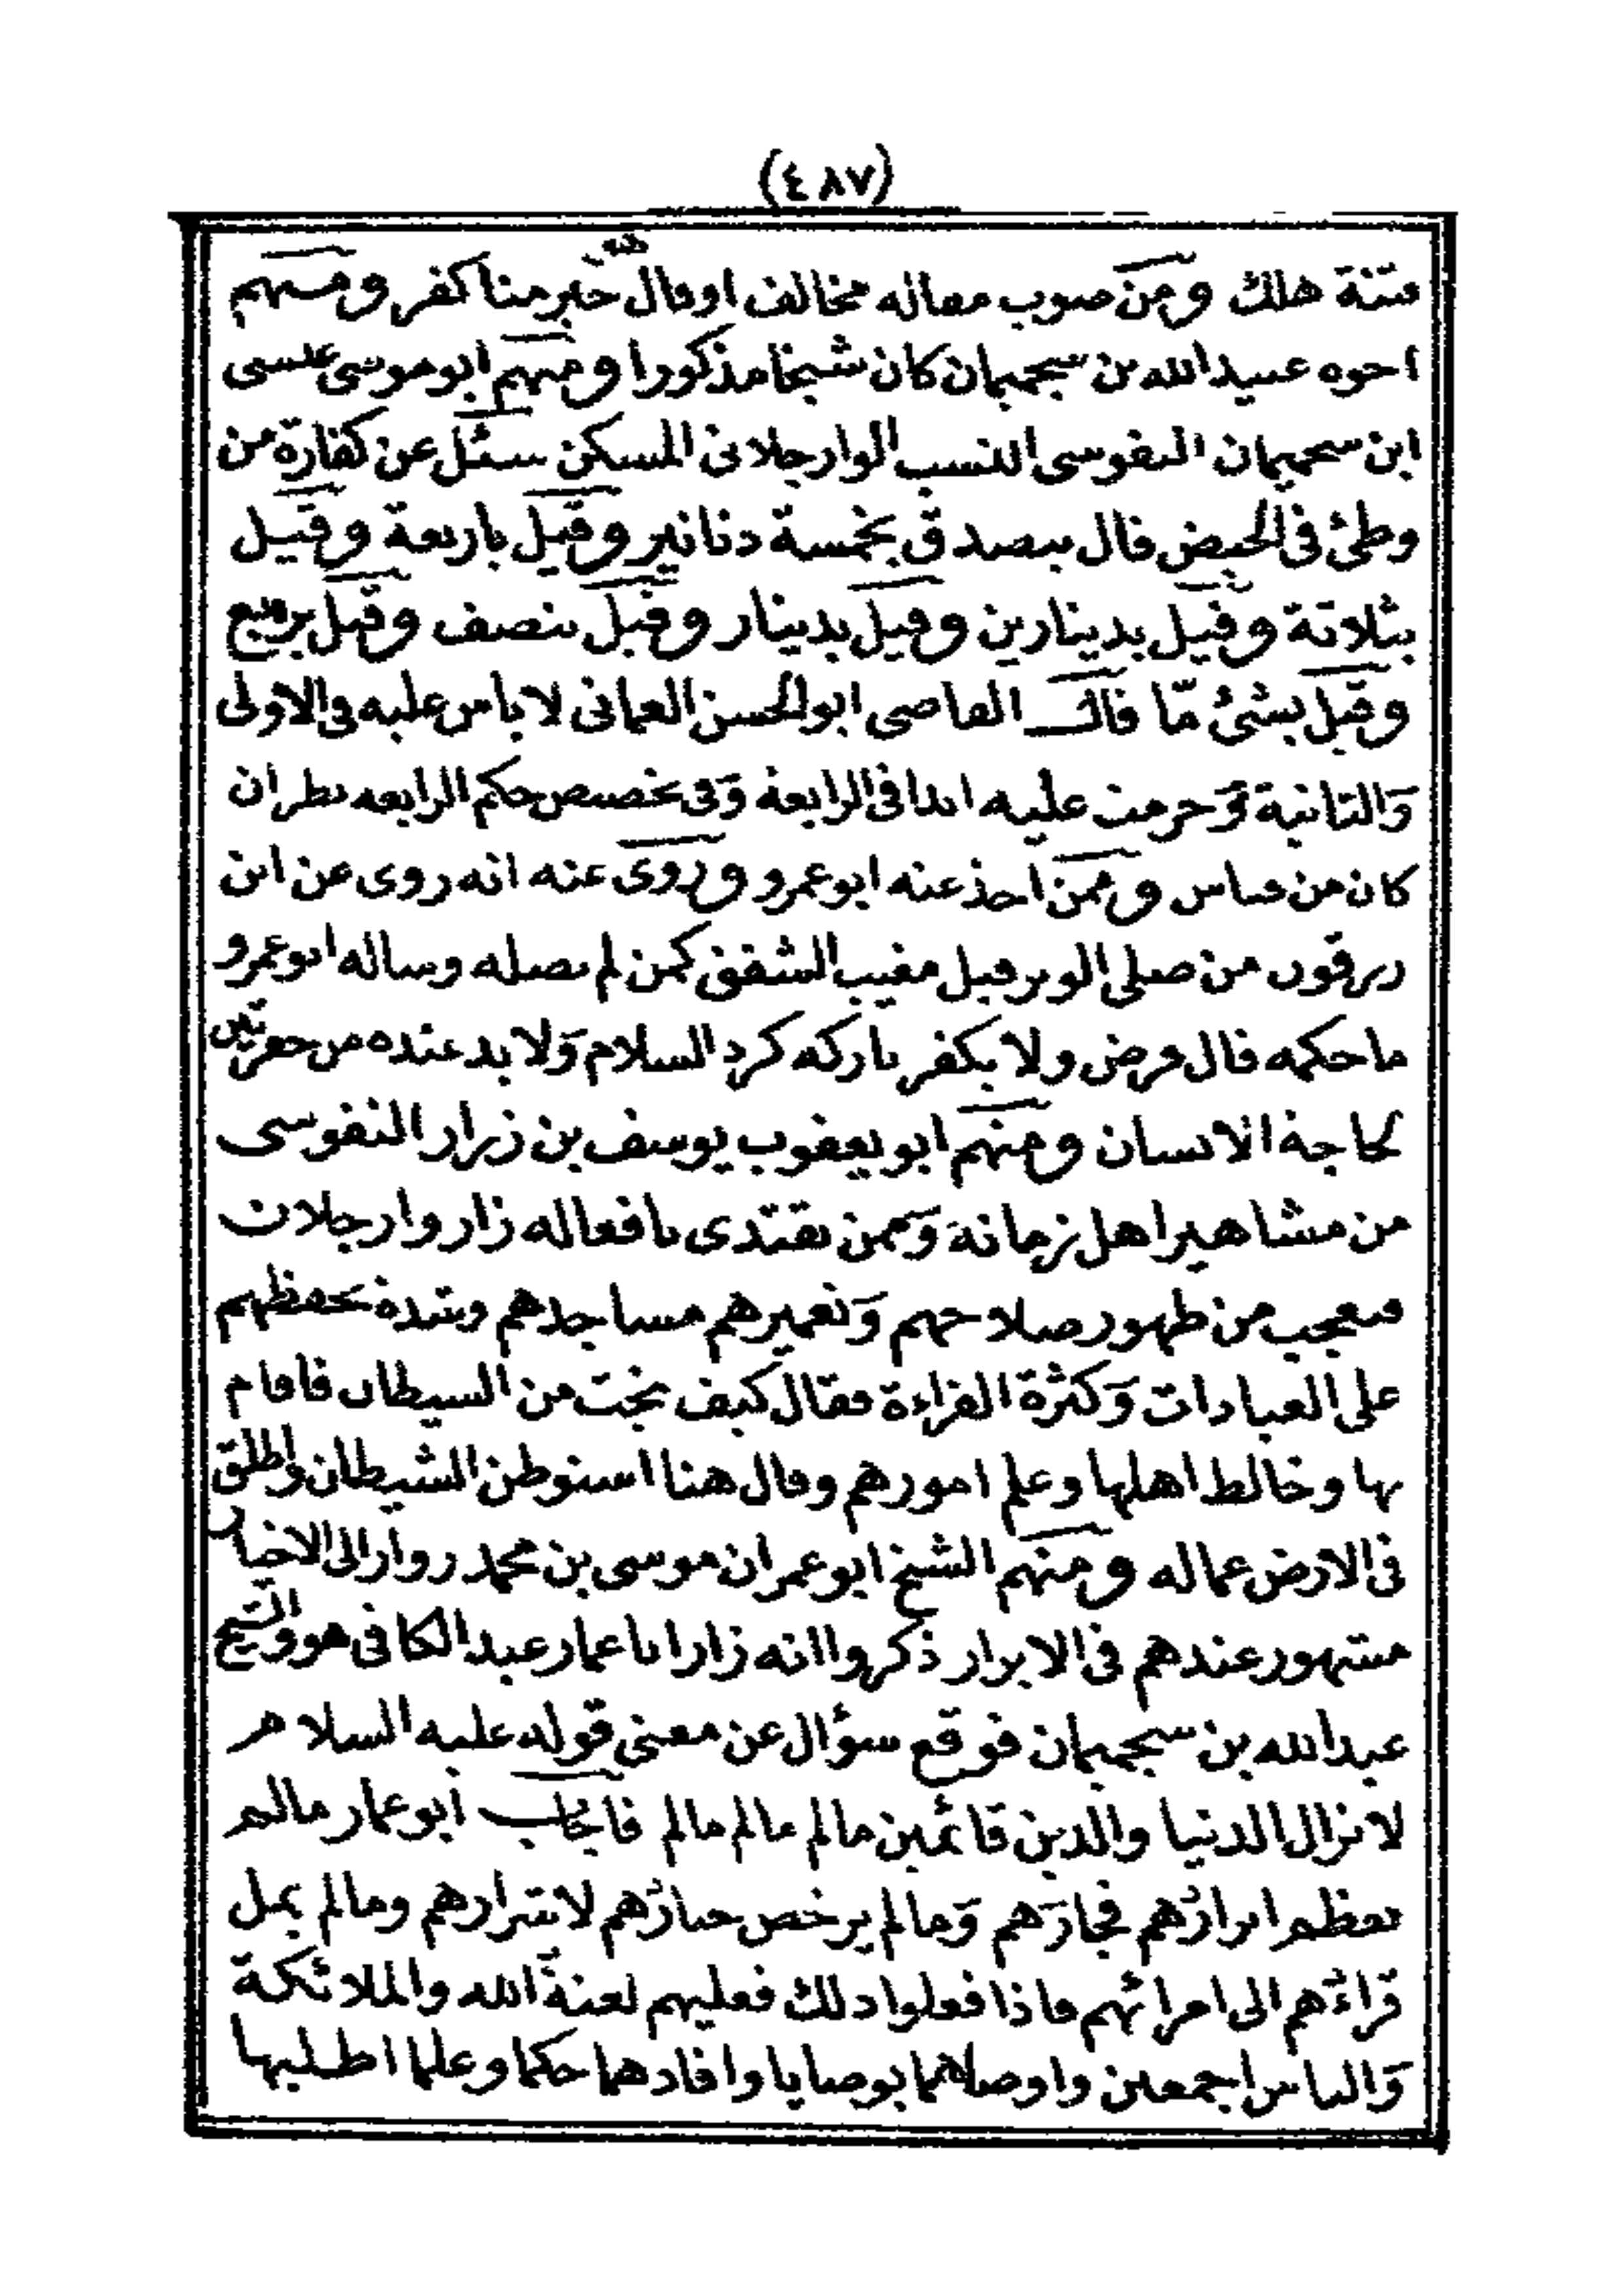 (٤٨٧)
فتنة هلك ومن صوب مقاله مخالف اوقال هو خير منا كفر ومنهم
اخوه عبيد الله بن سجميمان كان شيخا مذكورا ومنهم ابو موسى عيسى
ابن سجميمان النفوسى النسب الوارجلانى المسكن سئل عن كفارة من
وطئ فى الحيض قال يتصدق بخمسة دنانير وقيل باربعة وقيل
بثلاثة وقيل بدينارين وقيل بدينار وقيل بنصف وقيل بربع
وقيل بشئ مّا قال القاضى ابو الحسن العمانى لا باس عليه فى الاولى
والثانية وحرمت عليه ابدا فى الرابعة وفى تخصيص حكم الرابعه نظر ان
كان من قياس وممن اخذ عنه ابو عمرو وروى عنه انه روى عن ابن
زرقون من صلى الوتر قبل مغيب الشفق كمن لم يصله وساله ابو عمرو
ما حكمه قال فرض ولا يكفر تاركه كرد السلام ولا بد عنده من حفرتين
لحاجة الانسان ومنهم ابو يعقوب يوسف بن زرار النفوسى
من مشاهير اهل زمانه وممن يقتدى بافعاله زار وارجلان
فعجب من ظهور صلاحهم وتعميرهم مساجدهم وشدة تحفظهم
على العبادات وكثرة القراءة فقال كيف نجت من الشيطان فاقام
بها وخالط اهلها وعلم امورهم وقال هنا استوطن الشيطان واطلق
فى الارض عماله ومنهم الشيخ ابو عمران موسى بن محمد زوار الى الاخيار
مشهور عندهم فى الابرار ذكروا انه زار ابا عمار عبد الكافى هو والشيخ
عبد الله بن سجميمان فوقع سؤال عن معنى قوله عليه السلام
لا تزال الدنيا والدين قائمين مالم مالم مالم فاجاب ابو عمار مالم
يعظم ابرارُهم فجارَهم ومالم يرخص خيارُهم لاشرارهم ومالم يمل
قراءُهم الى امرائهم فاذا فعلوا ذلك فعليهم لعنة الله والملائكة
والناس اجمعين واوصاهما بوصايا وافادهما حكما وعلما اطلبها